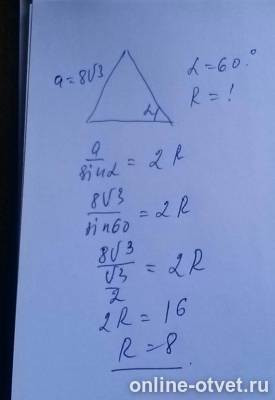 a = 8√3
α = 60°
R = !
α
a / sin α = 2R
8√3 / sin 60 = 2R
8√3 / (√3 / 2) = 2R
2R = 16
R = 8
online-otvet.ru